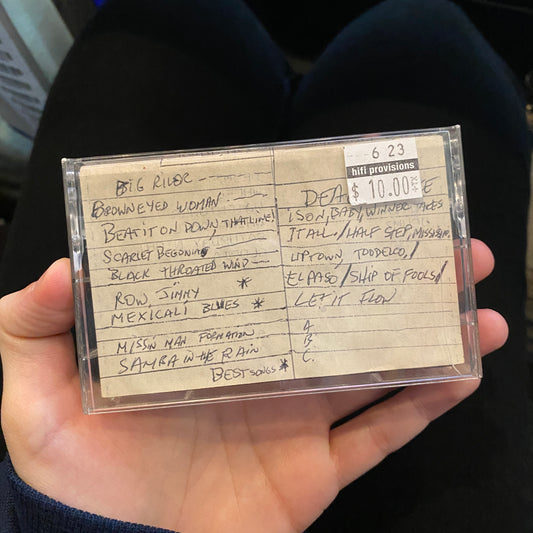 BIG RIVER
BROWN EYED WOMAN
BEAT IT ON DOWN THAT LINE!
SCARLET BEGONING
BLACK THROATED WIND
ROW, JIMMY *
MEXICALI BLUES *
MISSIN MAN FORMATION
SAMBA IN THE RAIN
BEST SONGS *
6 23
hifi provisions
$ 10.00
DEA
1 SON, BABY, WINNER TAKES
IT ALL / HALF STEP, MISSISSIPPI,
UPTOWN, TOODELOO, /
EL PASO / SHIP OF FOOLS /
LET IT FLOW
A.
B
C.